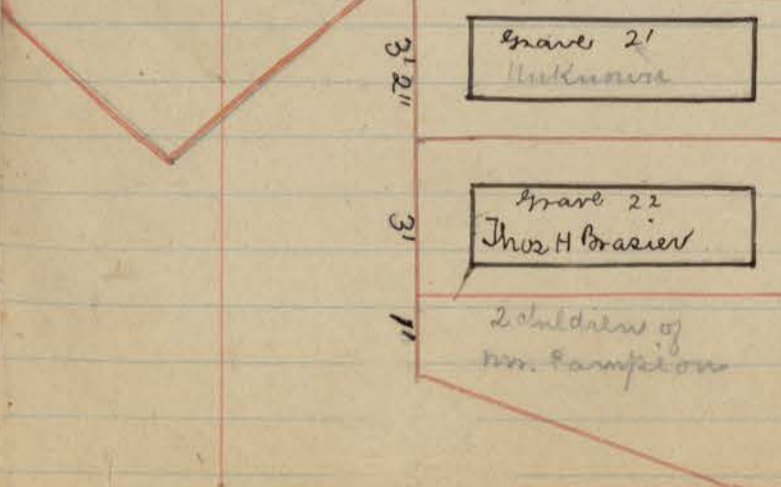 3' 2"
Grave 21
Unknown
3'
Grave 22
Thos H Brasier
1"
2 children of
Mrs. Campion